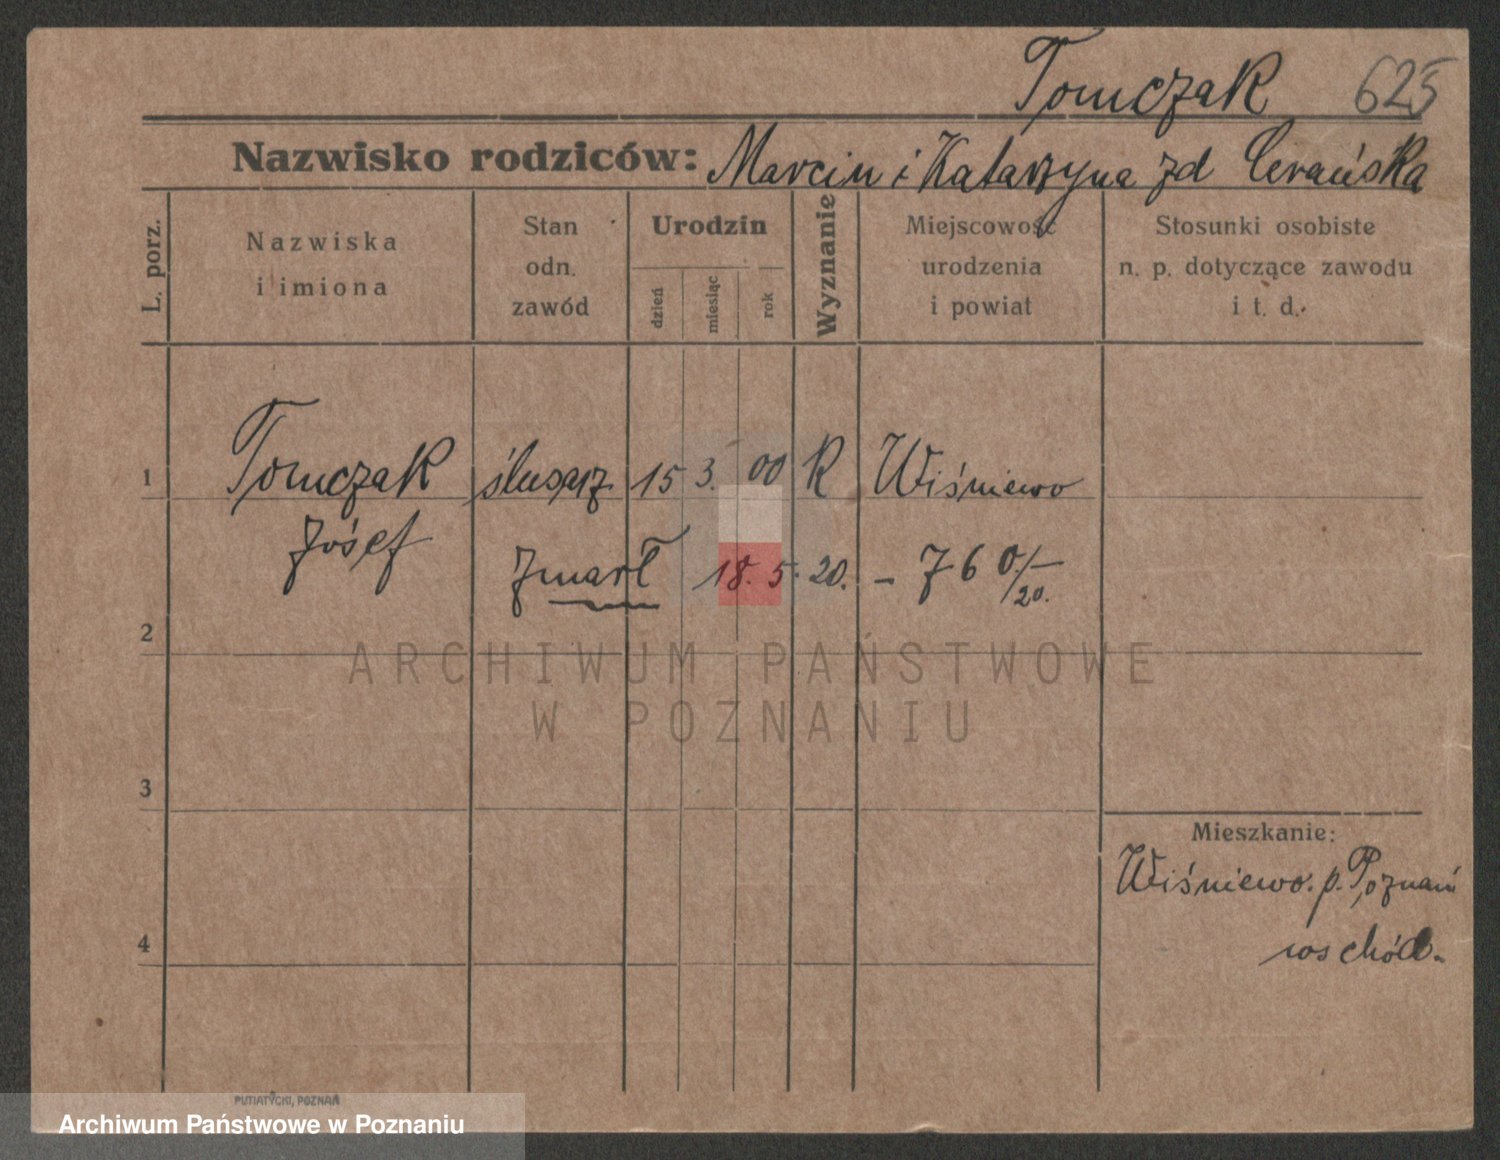 Tomczak 625
Nazwisko rodziców: Marcin i Katarzyna zd Cerańska
L. porz.
Nazwiska
i imiona
Stan
odn.
zawód
Urodzin
dzień
miesiąc
rok
Wyznanie
Miejscowość
urodzenia
i powiat
Stosunki osobiste
n. p. dotyczące zawodu
i t. d.
1 Tomczak ślusarz 15 3. 00 R Wiśniewo
Józef
zmarł 18. 5. 20. – 760/20.
2
ARCHIWUM PAŃSTWOWE
W POZNANIU
3
Mieszkanie:
Wiśniewo. p. Poznań
wschód.
4
PUTIATYCKI, POZNAŃ
Archiwum Państwowe w Poznaniu